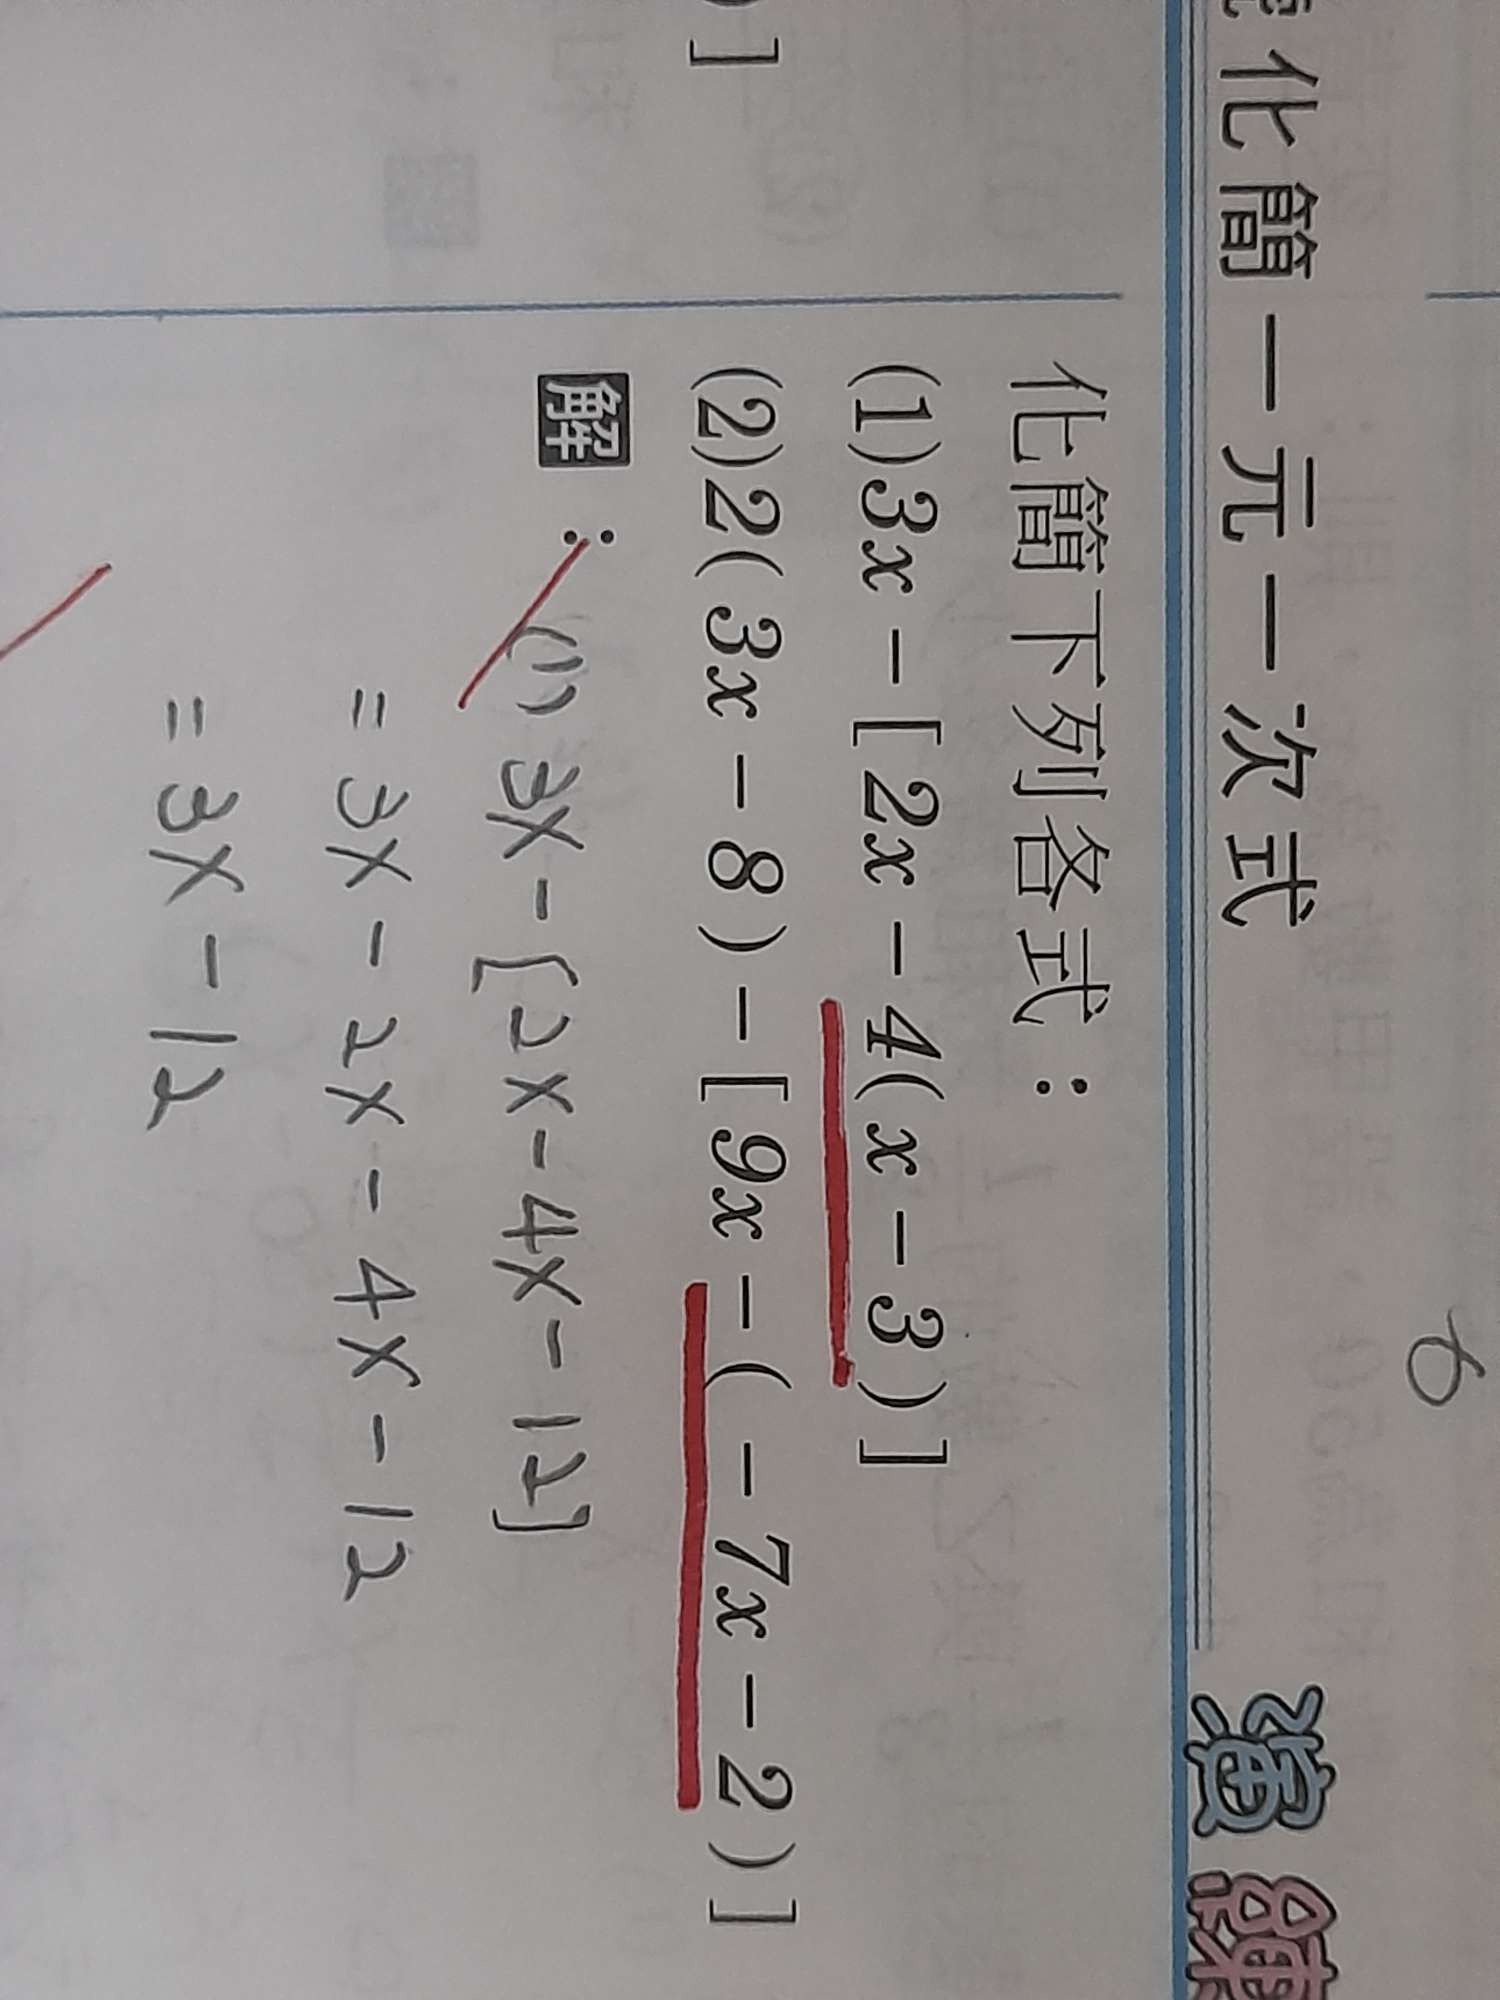 化簡一元一次式
演練
6
)]
化簡下列各式：
(1)3x－[2x－4(x－3)]
(2)2(3x－8)－[9x－(－7x－2)]
解：(1) 3x-[2x-4x-12]
=3x-2x-4x-12
=3x-12